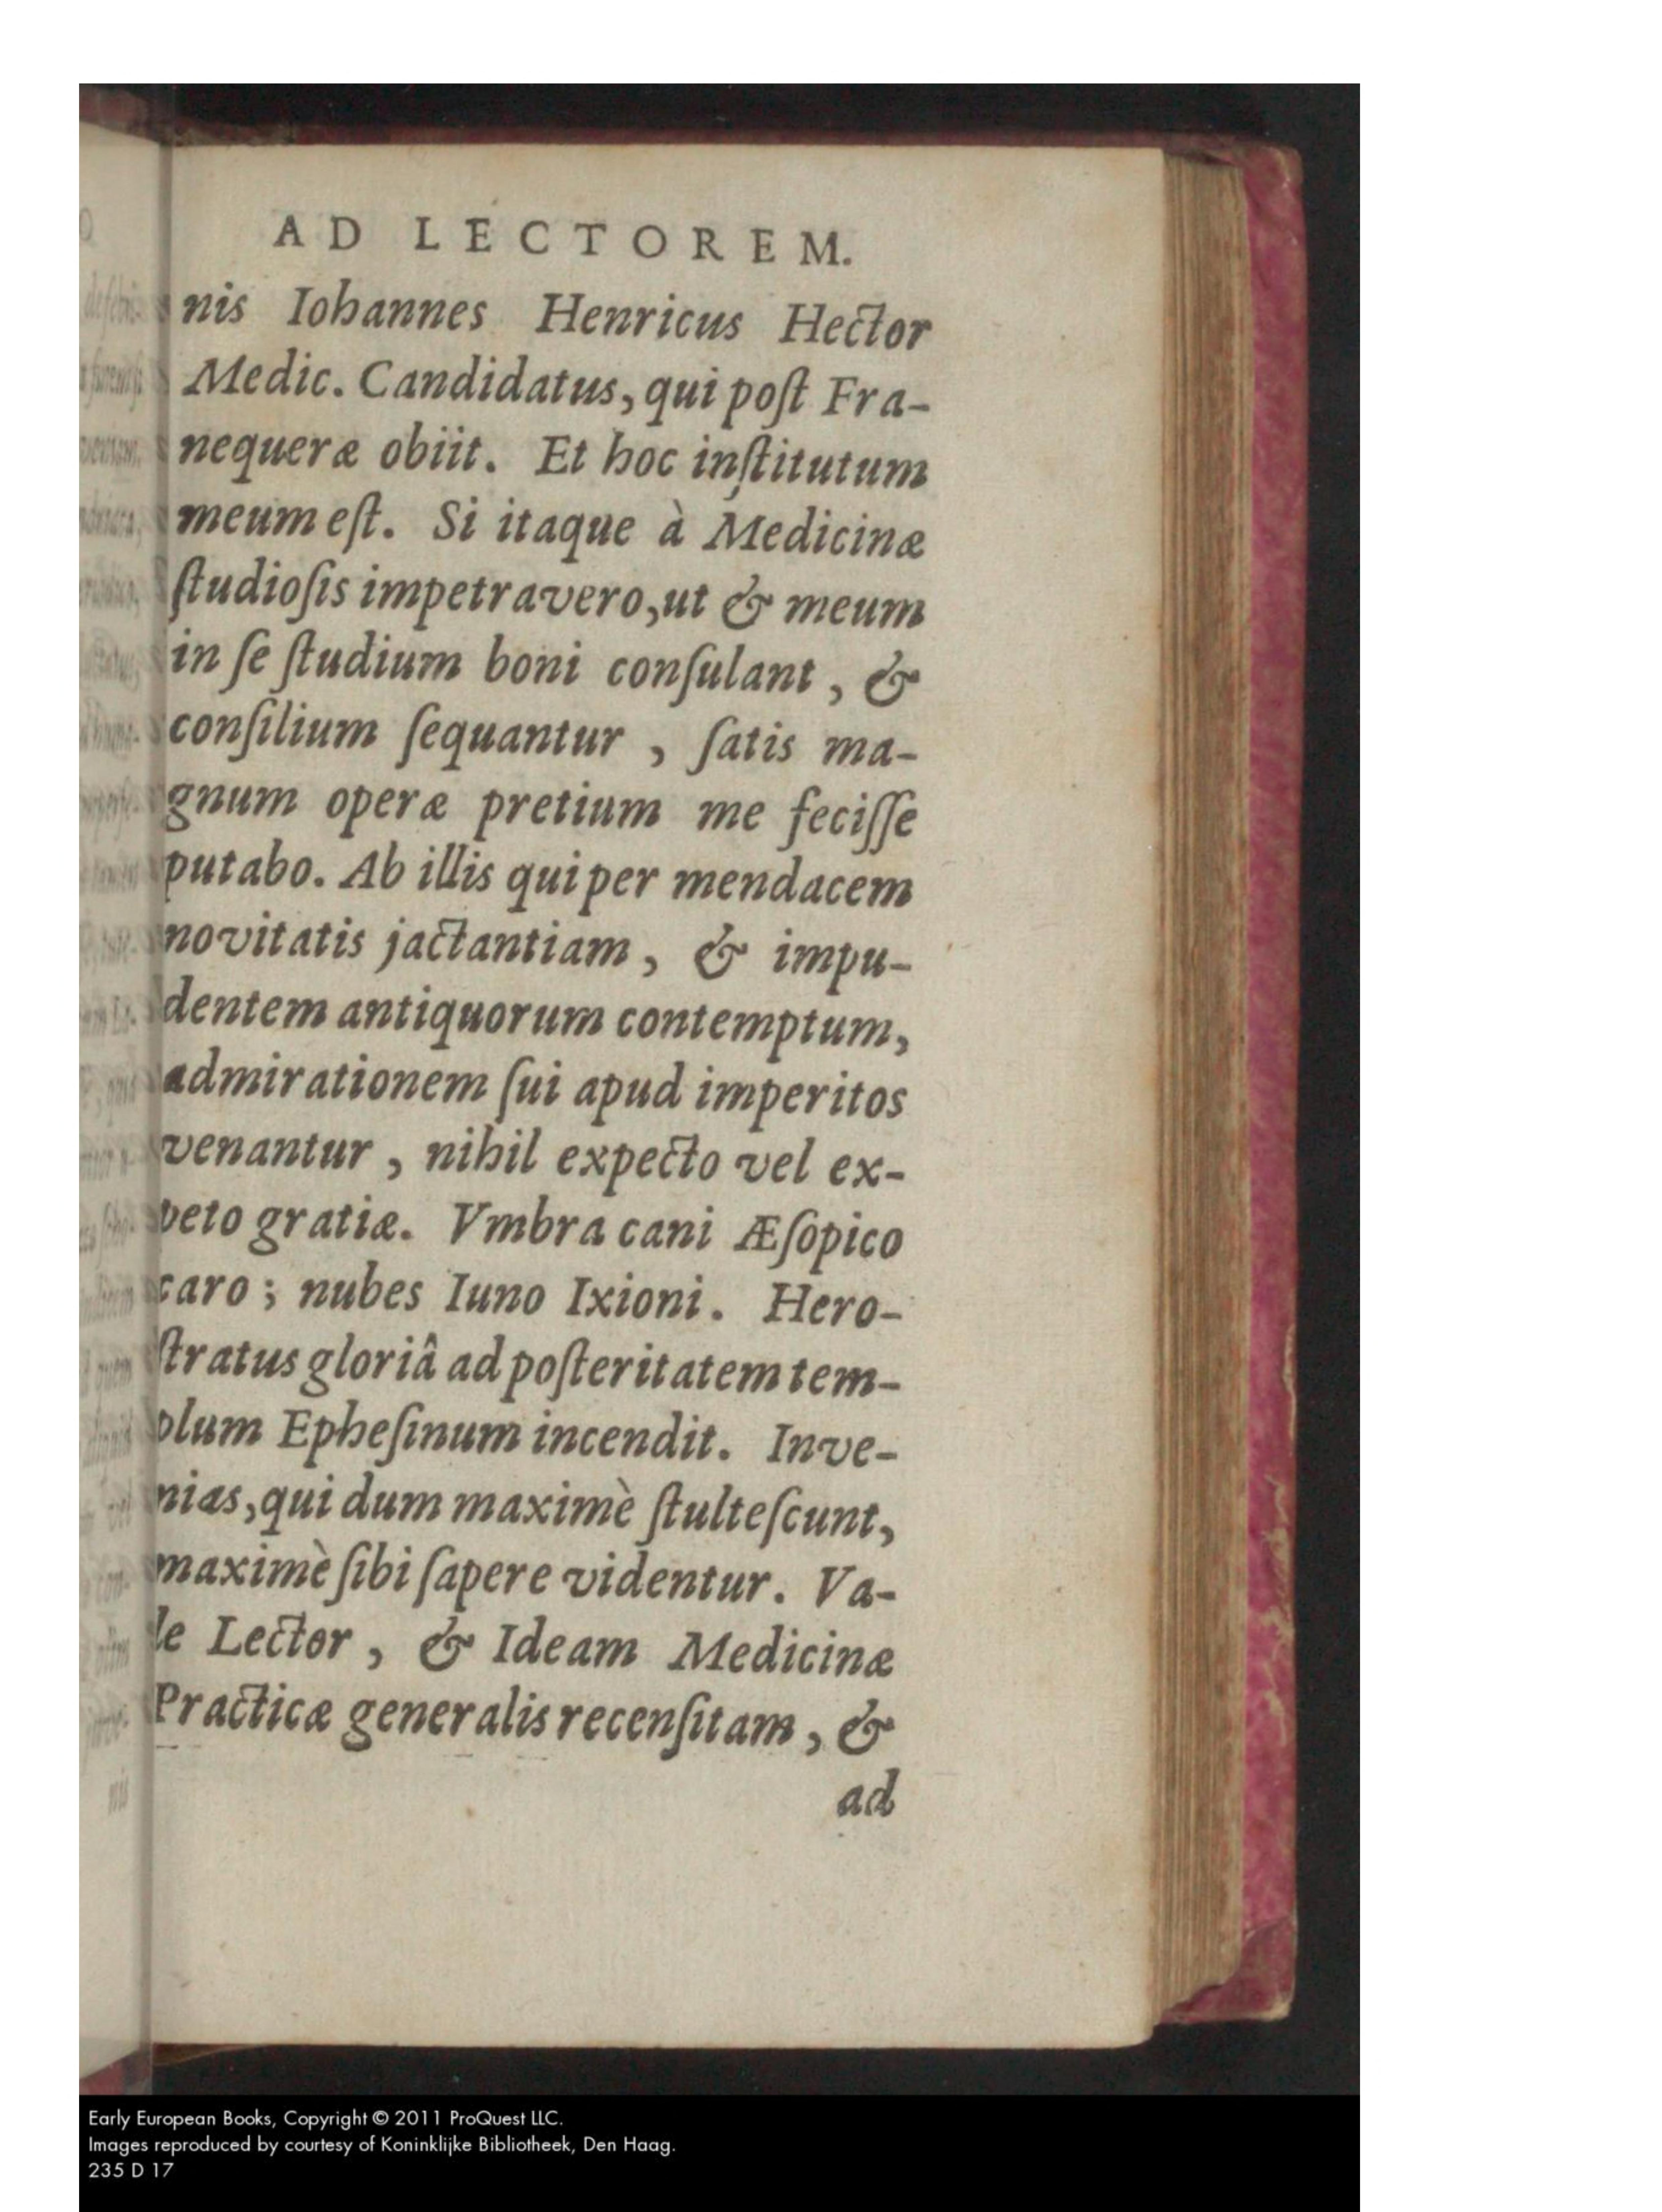 AD LECTOREM.
nis Iohannes Henricus Hector
Medic. Candidatus, qui poſt Fra-
nequeræ obiit. Et hoc inſtitutum
meum eſt. Si itaque à Medicinæ
ſtudioſis impetravero, ut & meum
in ſe ſtudium boni conſulant, &
conſilium ſequantur, ſatis ma-
gnum operæ pretium me feciſſe
putabo. Ab illis qui per mendacem
novitatis jactantiam, & impu-
dentem antiquorum contemptum,
admirationem ſui apud imperitos
venantur, nihil expecto vel ex-
peto gratiæ. Vmbra cani Æſopico
caro; nubes Iuno Ixioni. Hero-
ſtratus gloriâ ad poſteritatem tem-
plum Epheſinum incendit. Inve-
nias, qui dum maximè ſtulteſcunt,
maximè ſibi ſapere videntur. Va-
le Lector, & Ideam Medicinæ
Practicæ generalis recenſitam, &
ad
Early European Books, Copyright © 2011 ProQuest LLC.
Images reproduced by courtesy of Koninklijke Bibliotheek, Den Haag.
235 D 17